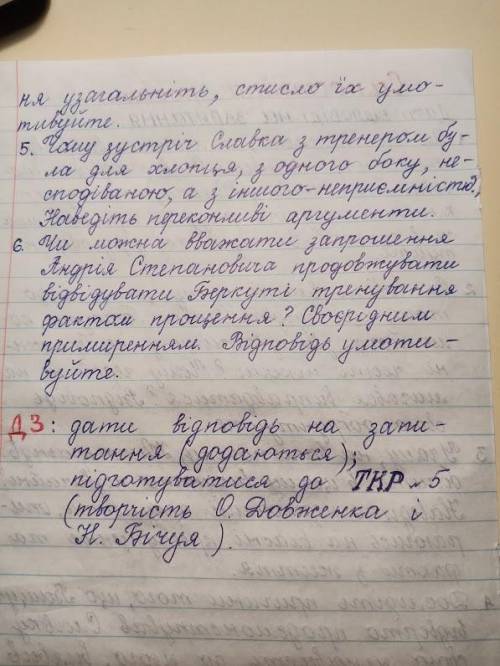 ня узагальніть, стисло їх умо-
тивуйте.
5. Чому зустріч Славка з тренером бу-
ла для хлопця, з одного боку, не-
сподіваною, а з іншого-неприємністю?
Наведіть переконливі аргументи.
6. Чи можна вважати запрошення
Андрія Степановича продовжувати
відвідувати Беркуті тренування
фактом прощення? Своєрідним
примиренням. Відповідь умоти-
вуйте.
ДЗ: дати відповідь на запи-
тання (додаються);
підготуватися до ТКР №5
(творчість О. Довженка і
Н. Бічуя).